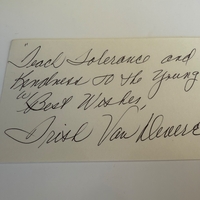 "Teach Tolerance and
Kindness To the Young"
Best Wishes,
Trish Van Devere